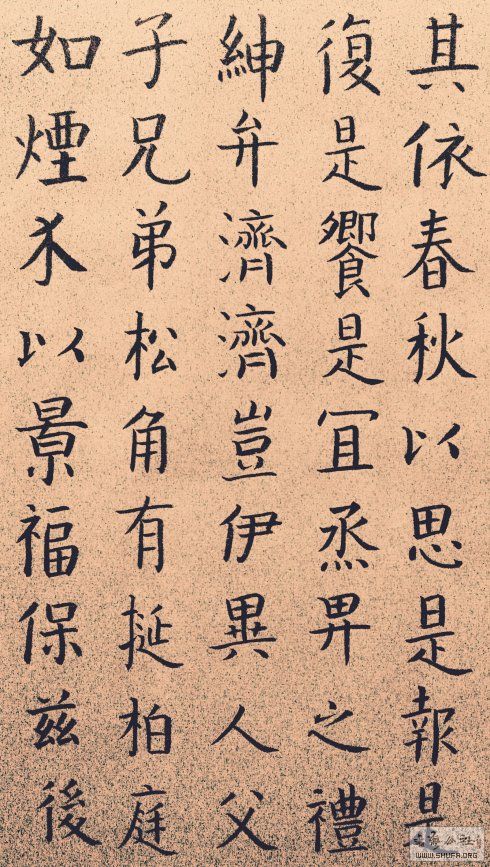 其依春秋以思是報是
復是饗是冝烝畀之禮
紳弁濟濟豈伊異人父
子兄弟松角有挻柏庭
如煙水以景福保茲後
WWW.SHUFA.ORG